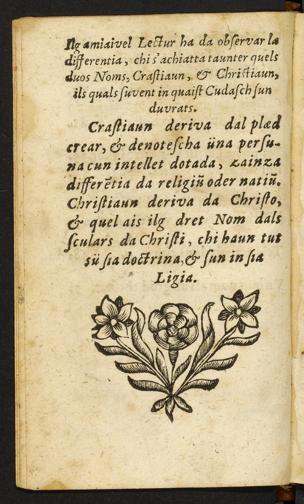 Ilg amiaivel Lectur ha da observar la
differentia, chi s'achiatta taunter quels
duos Noms, Crastiaun, & Christiaun,
ils quals suvent in quaist Cudasch sun
duvrats.
Crastiaun deriva dal plæd
crear, & denotescha üna persu-
na cun intellet dotada, zainza
differẽtia da religiũ oder natiũ.
Christiaun deriva da Christo,
& quel ais ilg dret Nom dals
sculars da Christi, chi haun tut
sü sia doctrina, & sun in sia
Ligia.